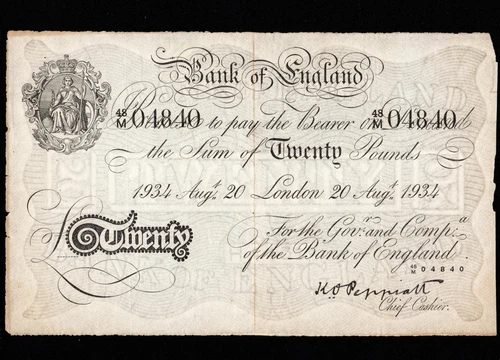 Bank of England
48/M 04840 48/M 04840
to pay the Bearer on Demand
the Sum of Twenty Pounds
1934 Augt. 20 London 20 Augt. 1934
For the Govr. and Compa.
Twenty
of the Bank of England.
48/M 04840
K.O. Peppiatt
Chief Cashier.